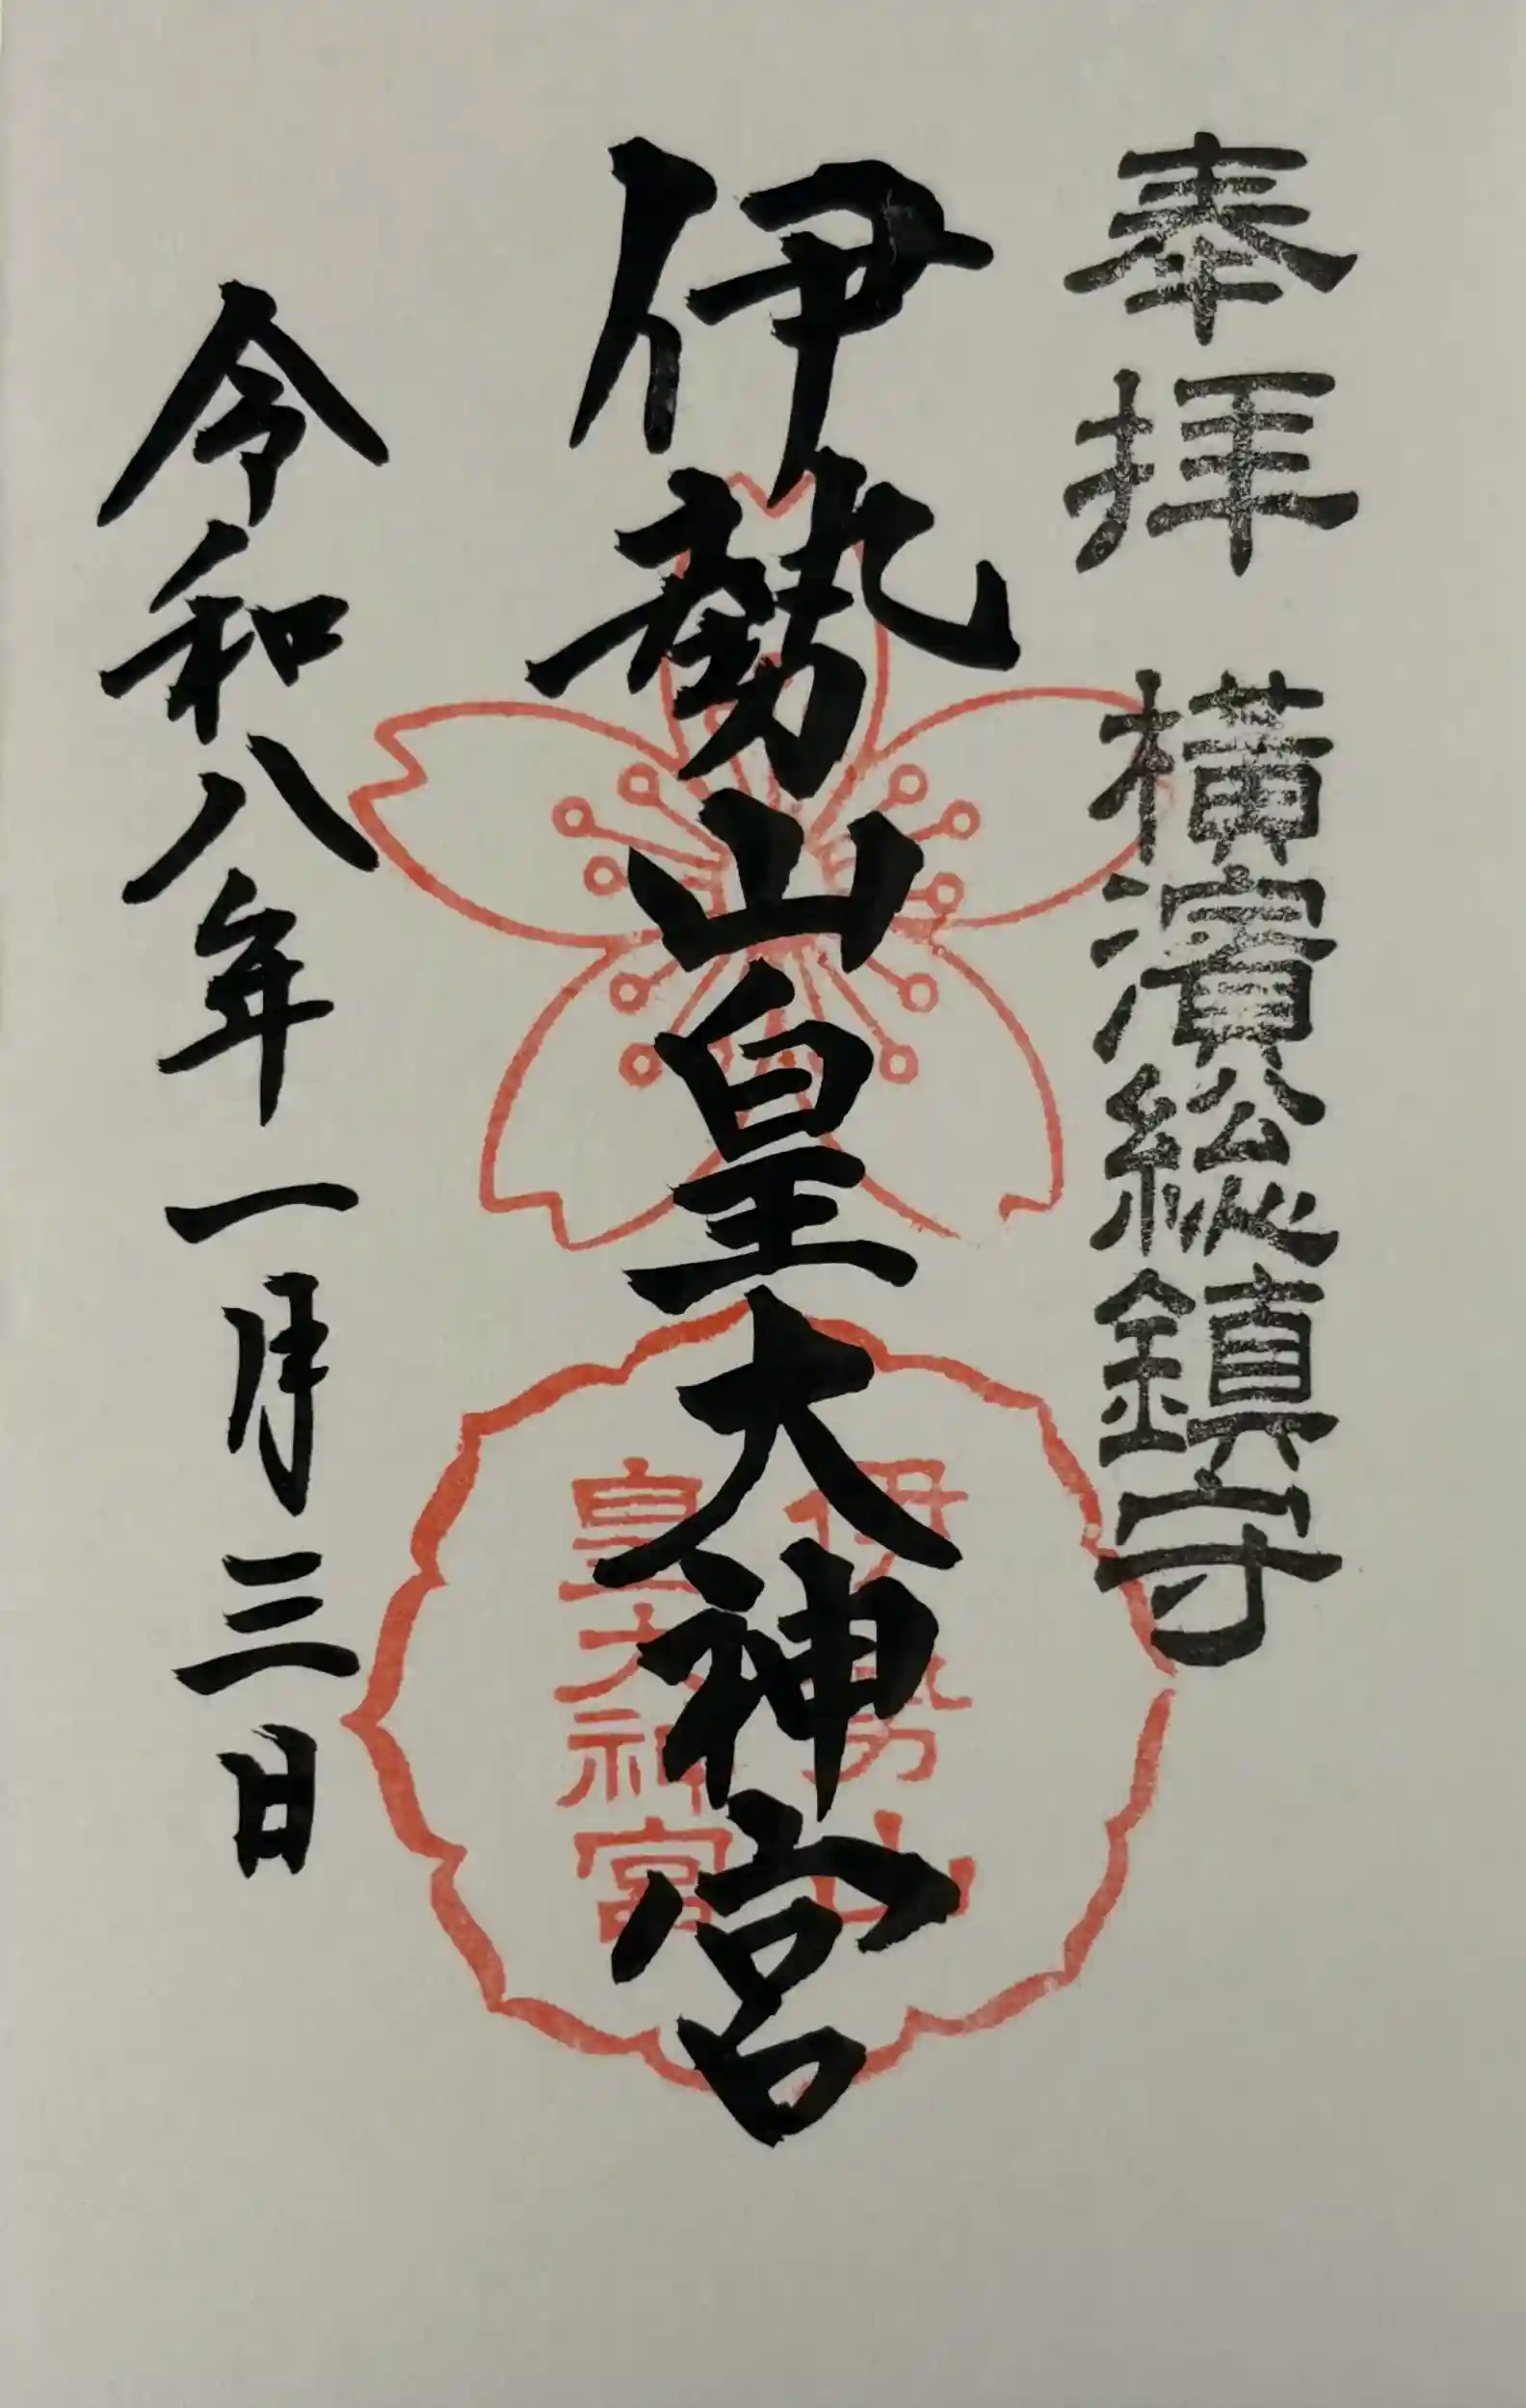 奉拝　横濱総鎮守
伊勢山皇大神宮
伊勢山
皇大神宮
令和八年一月三日